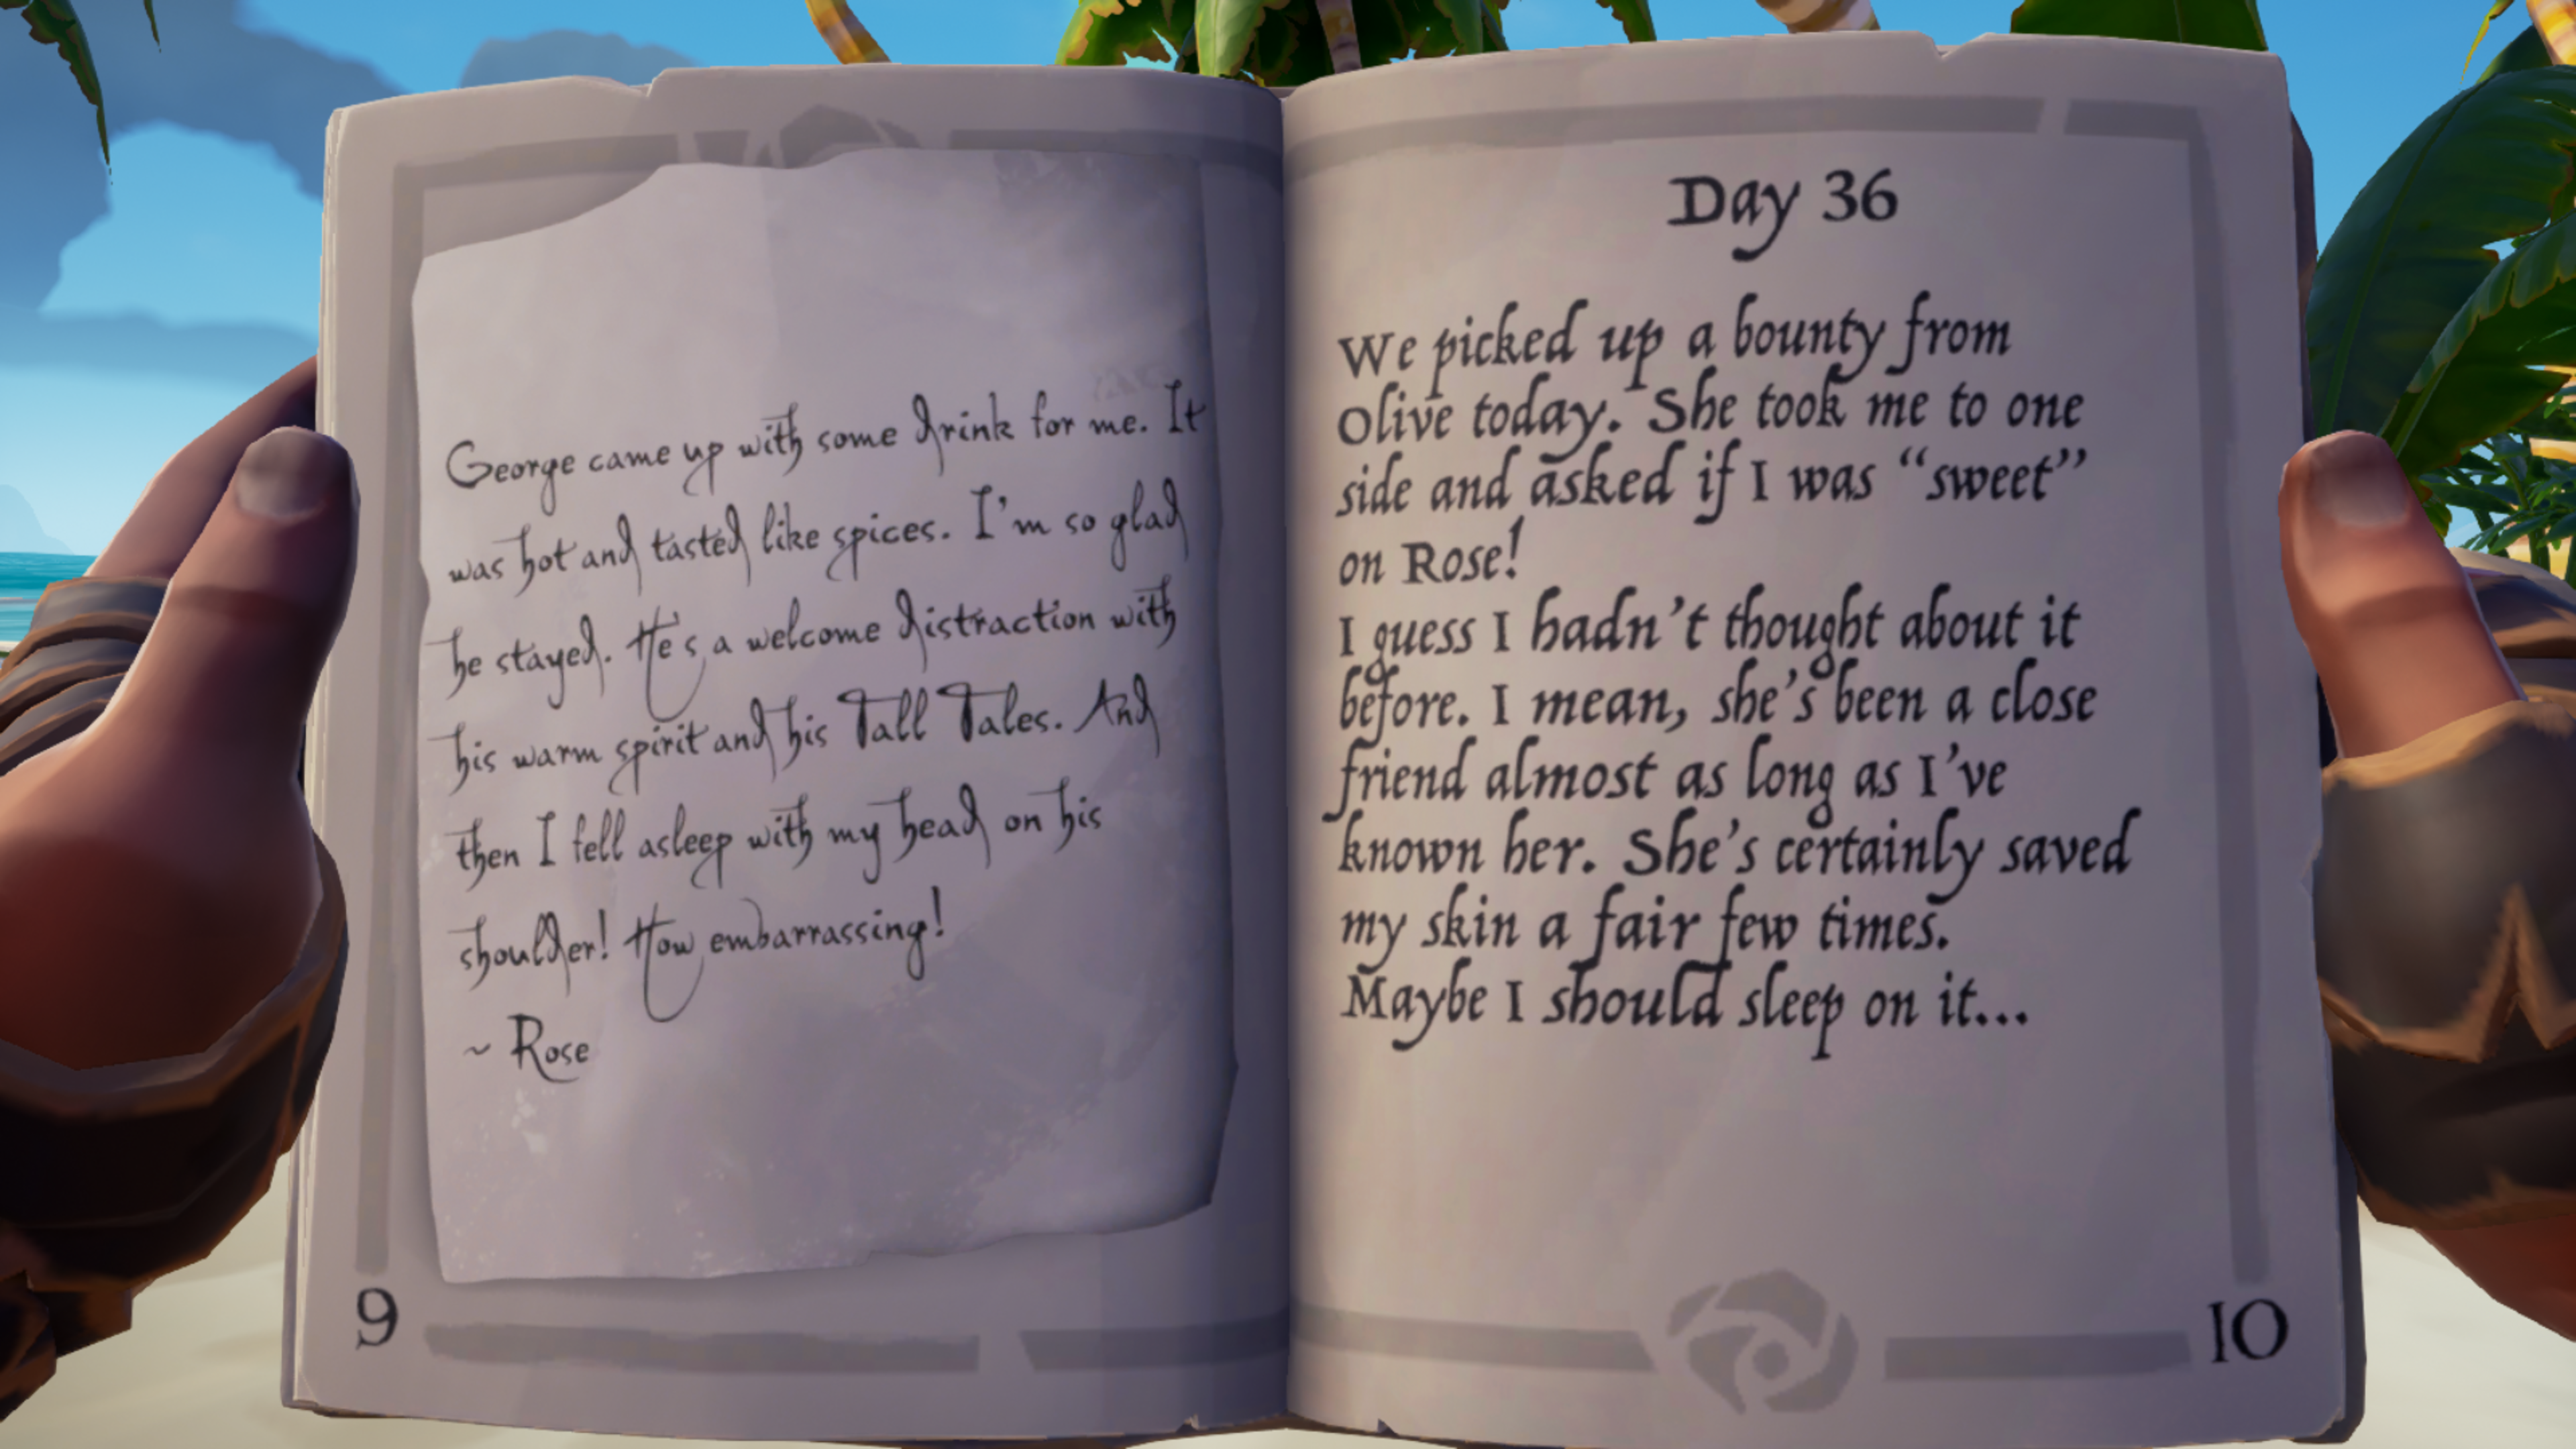 George came up with some drink for me. It
was hot and tasted like spices. I'm so glad
he stayed. He's a welcome distraction with
his warm spirit and his Tall Tales. And
then I fell asleep with my head on his
shoulder! How embarrassing!
~ Rose
9
Day 36
We picked up a bounty from
Olive today. She took me to one
side and asked if I was “sweet”
on Rose!
I guess I hadn't thought about it
before. I mean, she's been a close
friend almost as long as I've
known her. She's certainly saved
my skin a fair few times.
Maybe I should sleep on it...
10